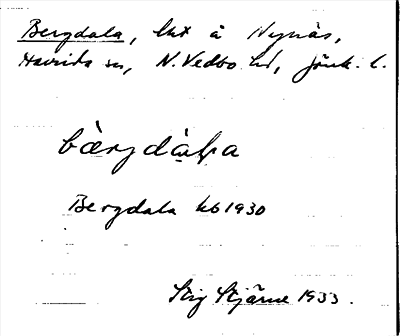 Bergdala, lht å Nynäs,
Haurida sn, N. Vedbo hd, Jönk. l.
bærgdàla
Bergdala kb 1930
Stig Stjärne 1933.